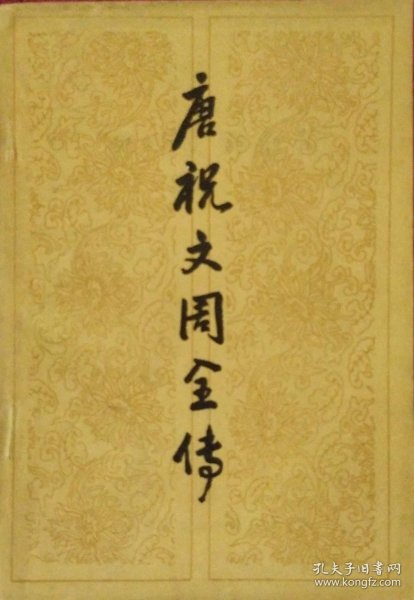 唐祝文周全傳
孔夫子旧书网
http://www.kongfz.com